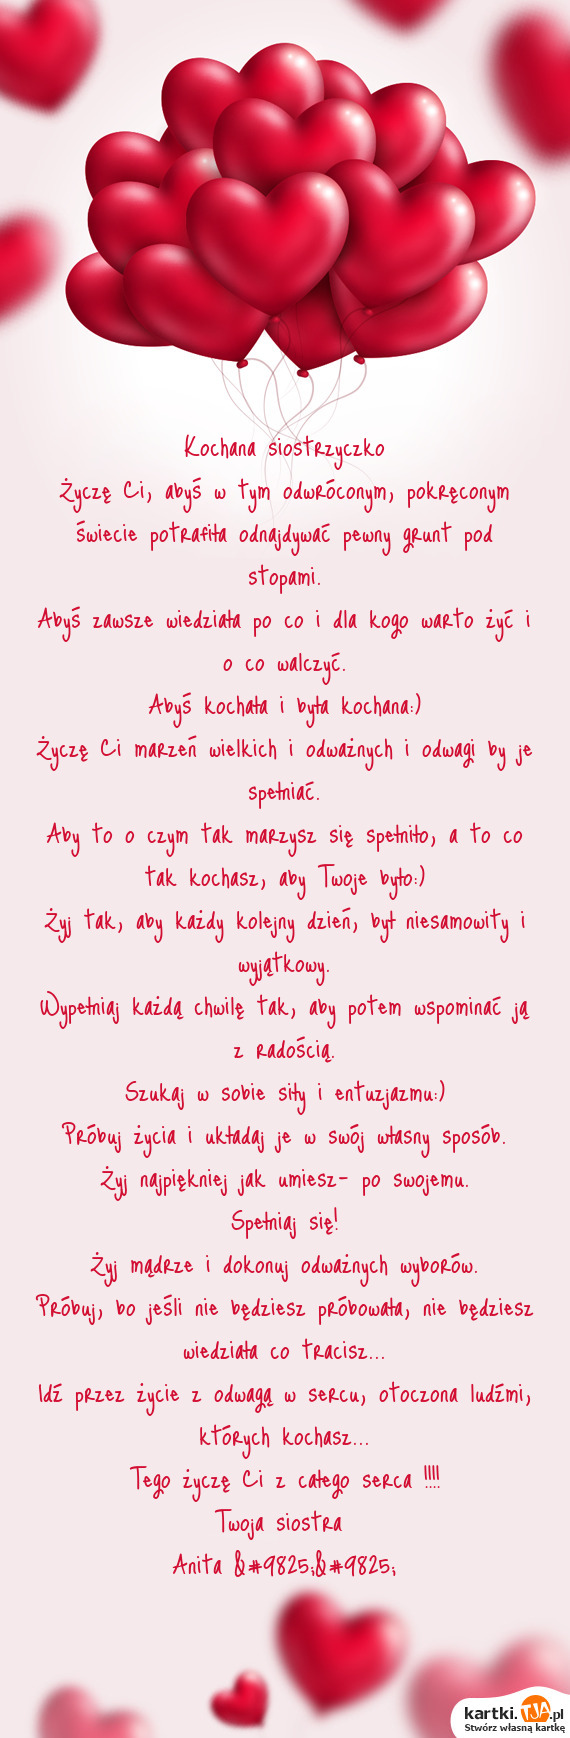 Kochana siostrzyczko
Życzę Ci, abyś w tym odwróconym, pokręconym
świecie potrafiła odnajdywać pewny grunt pod
stopami.
Abyś zawsze wiedziała po co i dla kogo warto żyć i
o co walczyć.
Abyś kochała i była kochana:)
Życzę Ci marzeń wielkich i odważnych i odwagi by je
spełniać.
Aby to o czym tak marzysz się spełniło, a to co
tak kochasz, aby Twoje było:)
Żyj tak, aby każdy kolejny dzień, był niesamowity i
wyjątkowy.
Wypełniaj każdą chwilę tak, aby potem wspominać ją
z radością.
Szukaj w sobie siły i entuzjazmu:)
Próbuj życia i układaj je w swój własny sposób.
Żyj najpiękniej jak umiesz- po swojemu.
Spełniaj się!
Żyj mądrze i dokonuj odważnych wyborów.
Próbuj, bo jeśli nie będziesz próbowała, nie będziesz
wiedziała co tracisz...
Idź przez życie z odwagą w sercu, otoczona ludźmi,
których kochasz...
Tego życzę Ci z całego serca !!!!
Twoja siostra
Anita &#9825;&#9825;
kartki.TJA.pl
Stwórz własną kartkę